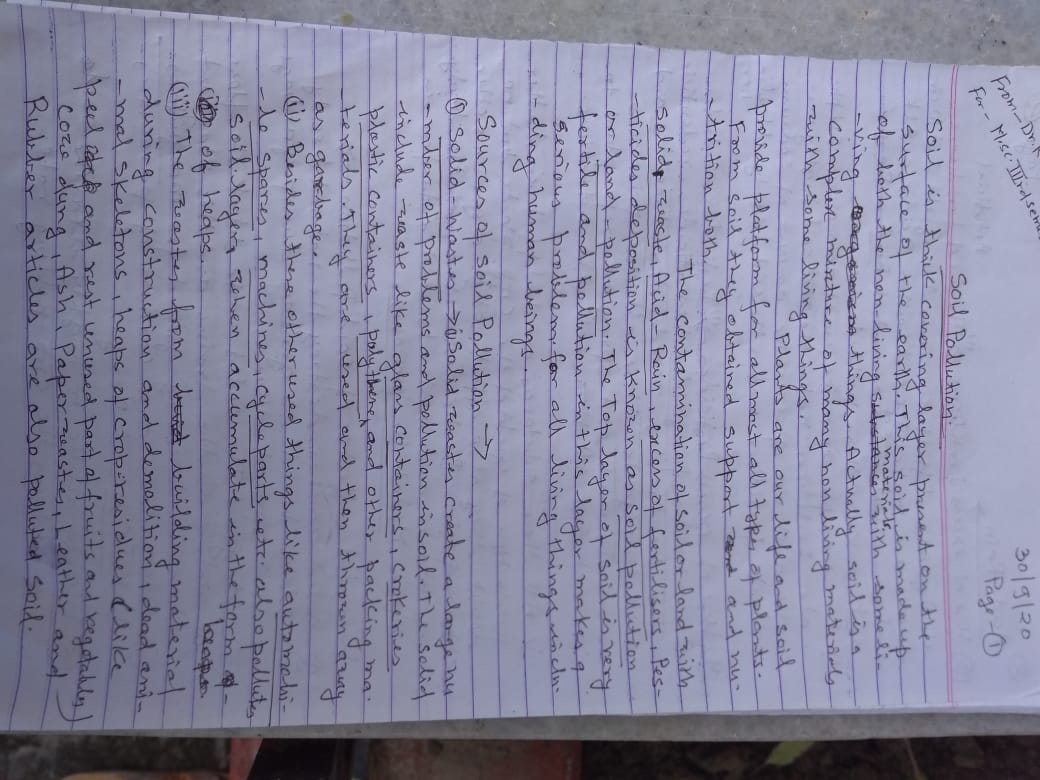 From - Dr. K
For - Msc. IIIrd sem
30/9/20
Page - 1
Soil Pollution :
Soil is thick covering layer present on the
surface of the earth. This soil is made up
of both the non-living materials with some li-
-ving things. Actually soil is a
complex mixture of many non living materials
with some living things.
Plants are our life and soil
provide platform for all most all types of plants.
From soil they obtained support and nu-
-trition both.
The contamination of soil or land with
solid waste, Acid-Rain, excess of fertilisers, Pes-
-ticides deposition is known as soil pollution
or land-pollution. The Top layer of soil is very
fertile and pollution in this layer makes a
serious problem for all living things inclu-
-ding human beings.
Sources of soil Pollution →
(i) Solid-Wastes → (i) Solid wastes create a large nu
-mber of problems and pollution in soil. The solid
include waste like glass containers, crokeries
plastic containers, polythene, and other packing ma-
-terials. They are used and then thrown away
as garabage.
(ii) Besides these other used things like automobi-
-le spares, machines, cycle parts etc. also pollutes
soil layers when accumulate in the form
of heaps.
(iii) The wastes from building material
during construction and demolition, dead ani-
-mal skeletons, heaps of crop residues (like
peel and rest unused part of fruits and vegetables)
coze dung, Ash, Paper wastes, Leather and
Rubber articles are also polluted soil.